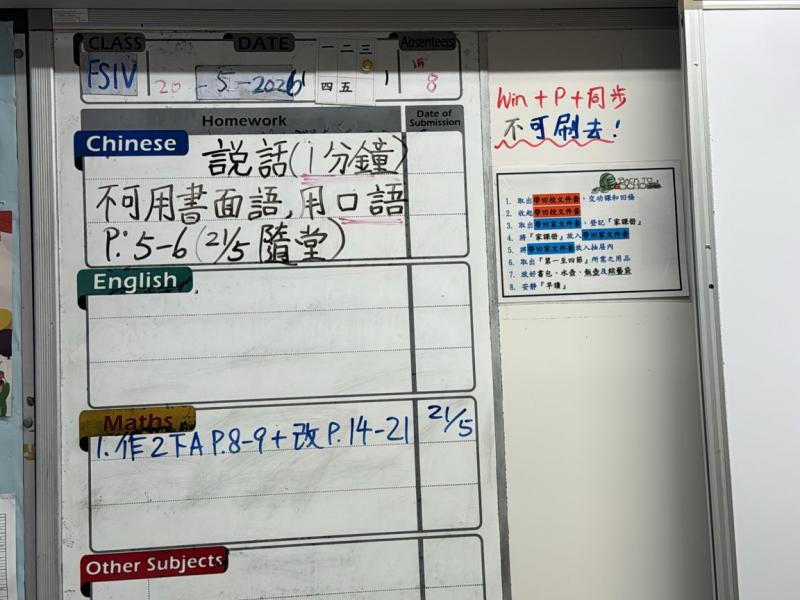 CLASS DATE Absentee(s)
FSIV 20 - 5 - 2026 8
一 二 三
四 五
Homework Date of Submission
Chinese
説話(1分鐘)
不可用書面語,用口語
P.5-6(21/5 隨堂)
English
Maths
1.作2下A P.8-9+改P.14-21 21/5
Other Subjects
Win+P+同步
不可刷去!
BACK TO SCHOOL
1. 取出帶回校文件套,交功課和回條
2. 收起帶回校文件套
3. 取出帶回家文件套,登記『家課冊』
4. 將『家課冊』放入帶回家文件套
5. 將帶回家文件套放入抽屜內
6. 取出『第一至四節』所需之用品
7. 放好書包、水壺、飯壺及綜藝袋
8. 安靜『早讀』